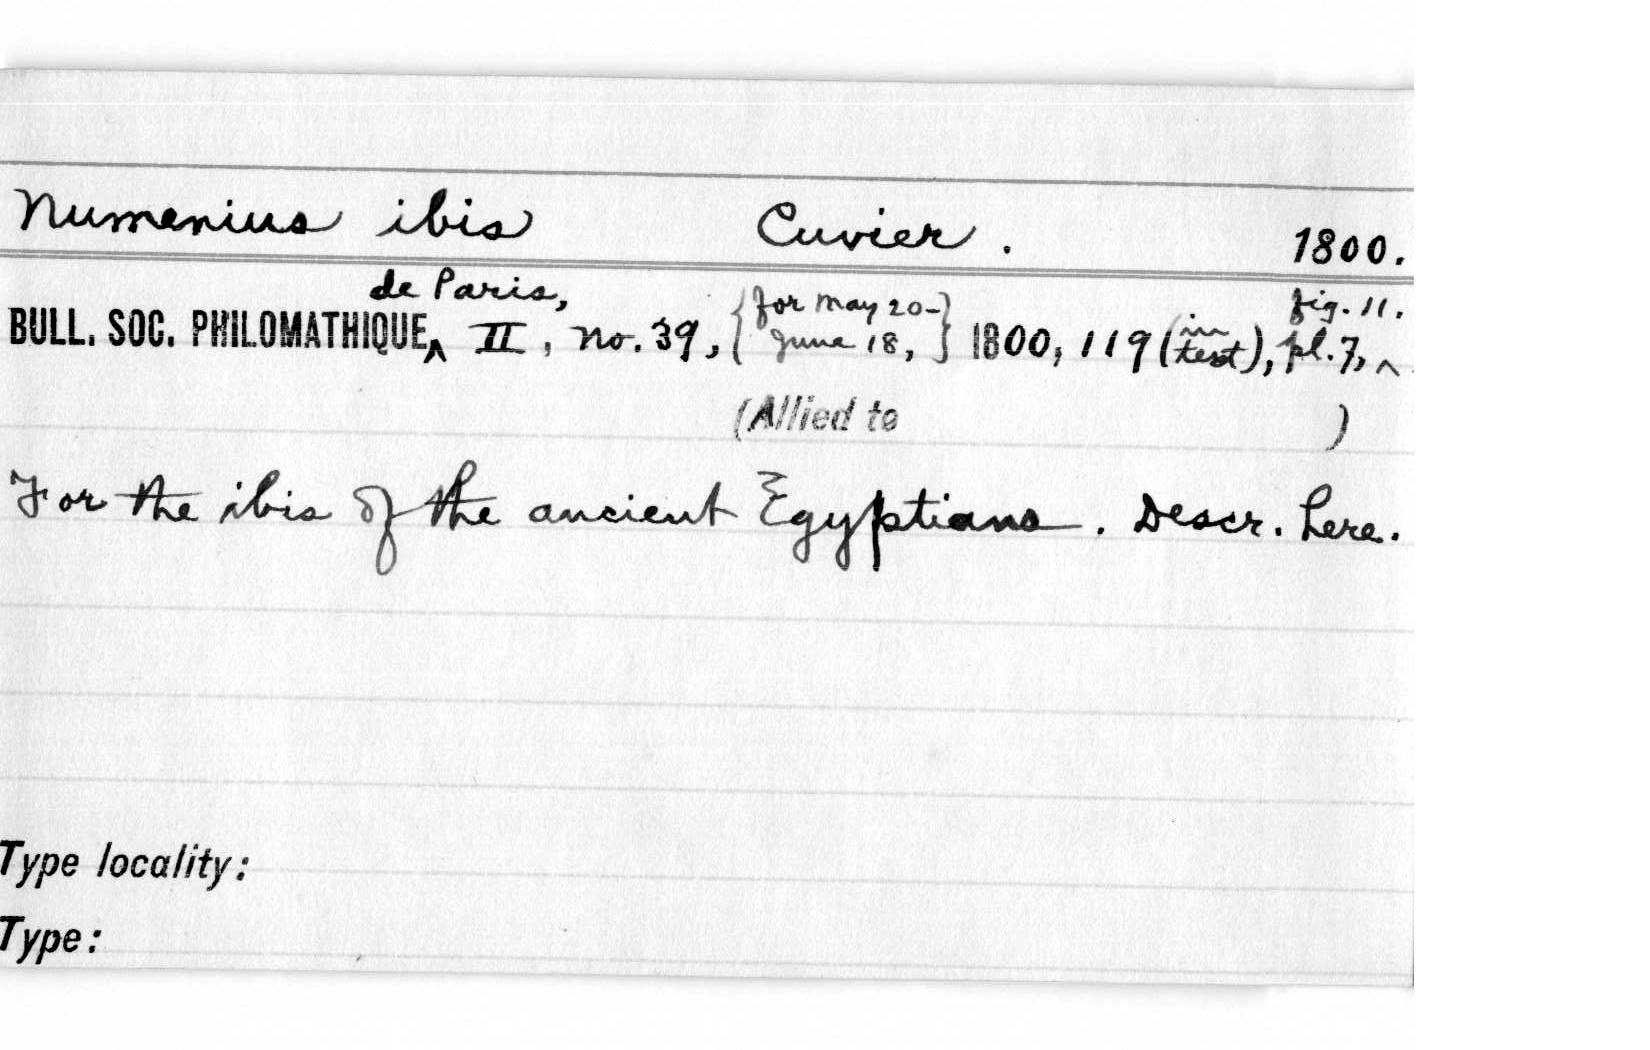 Numenius ibis Cuvier. 1800.
BULL. SOC. PHILOMATHIQUE ^ de Paris, II, no. 39, {for May 20-June 18,} 1800, 119 (in text), pl. 7, ^ fig. 11.
(Allied to )
For the ibis of the ancient Egyptians. Descr. here.
Type locality:
Type: